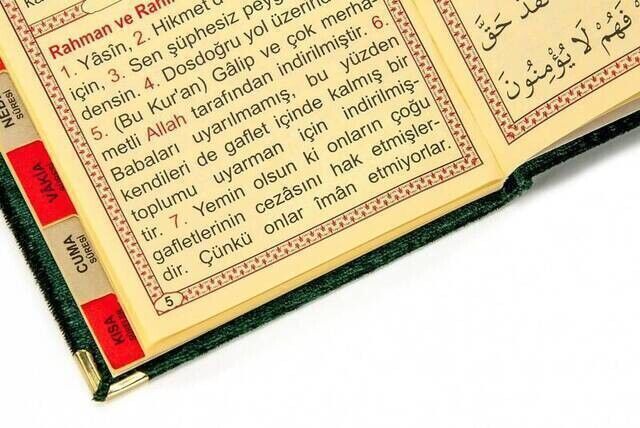 Rahman ve
1. Yâsîn, 2. Hikmet
için, 3. Sen şüphesiz
densin. 4. Dosdoğru yol
5. (Bu Kur'an) Gâlip ve çok merha-
metli Allah tarafından indirilmiştir. 6.
Babaları uyarılmamış, bu yüzden
kendileri de gaflet içinde kalmış bir
toplumu uyarman için indirilmiş-
tir. 7. Yemin olsun ki onların çoğu
gafletlerinin cezâsını hak etmişler-
dir. Çünkü onlar îmân etmiyorlar.
5
SÛRESİ
VÂKIA
CUMA
SÛRESİ
KISA
لَقَدْ حَقَّ
فَهُمْ لَا يُؤْمِنُونَ